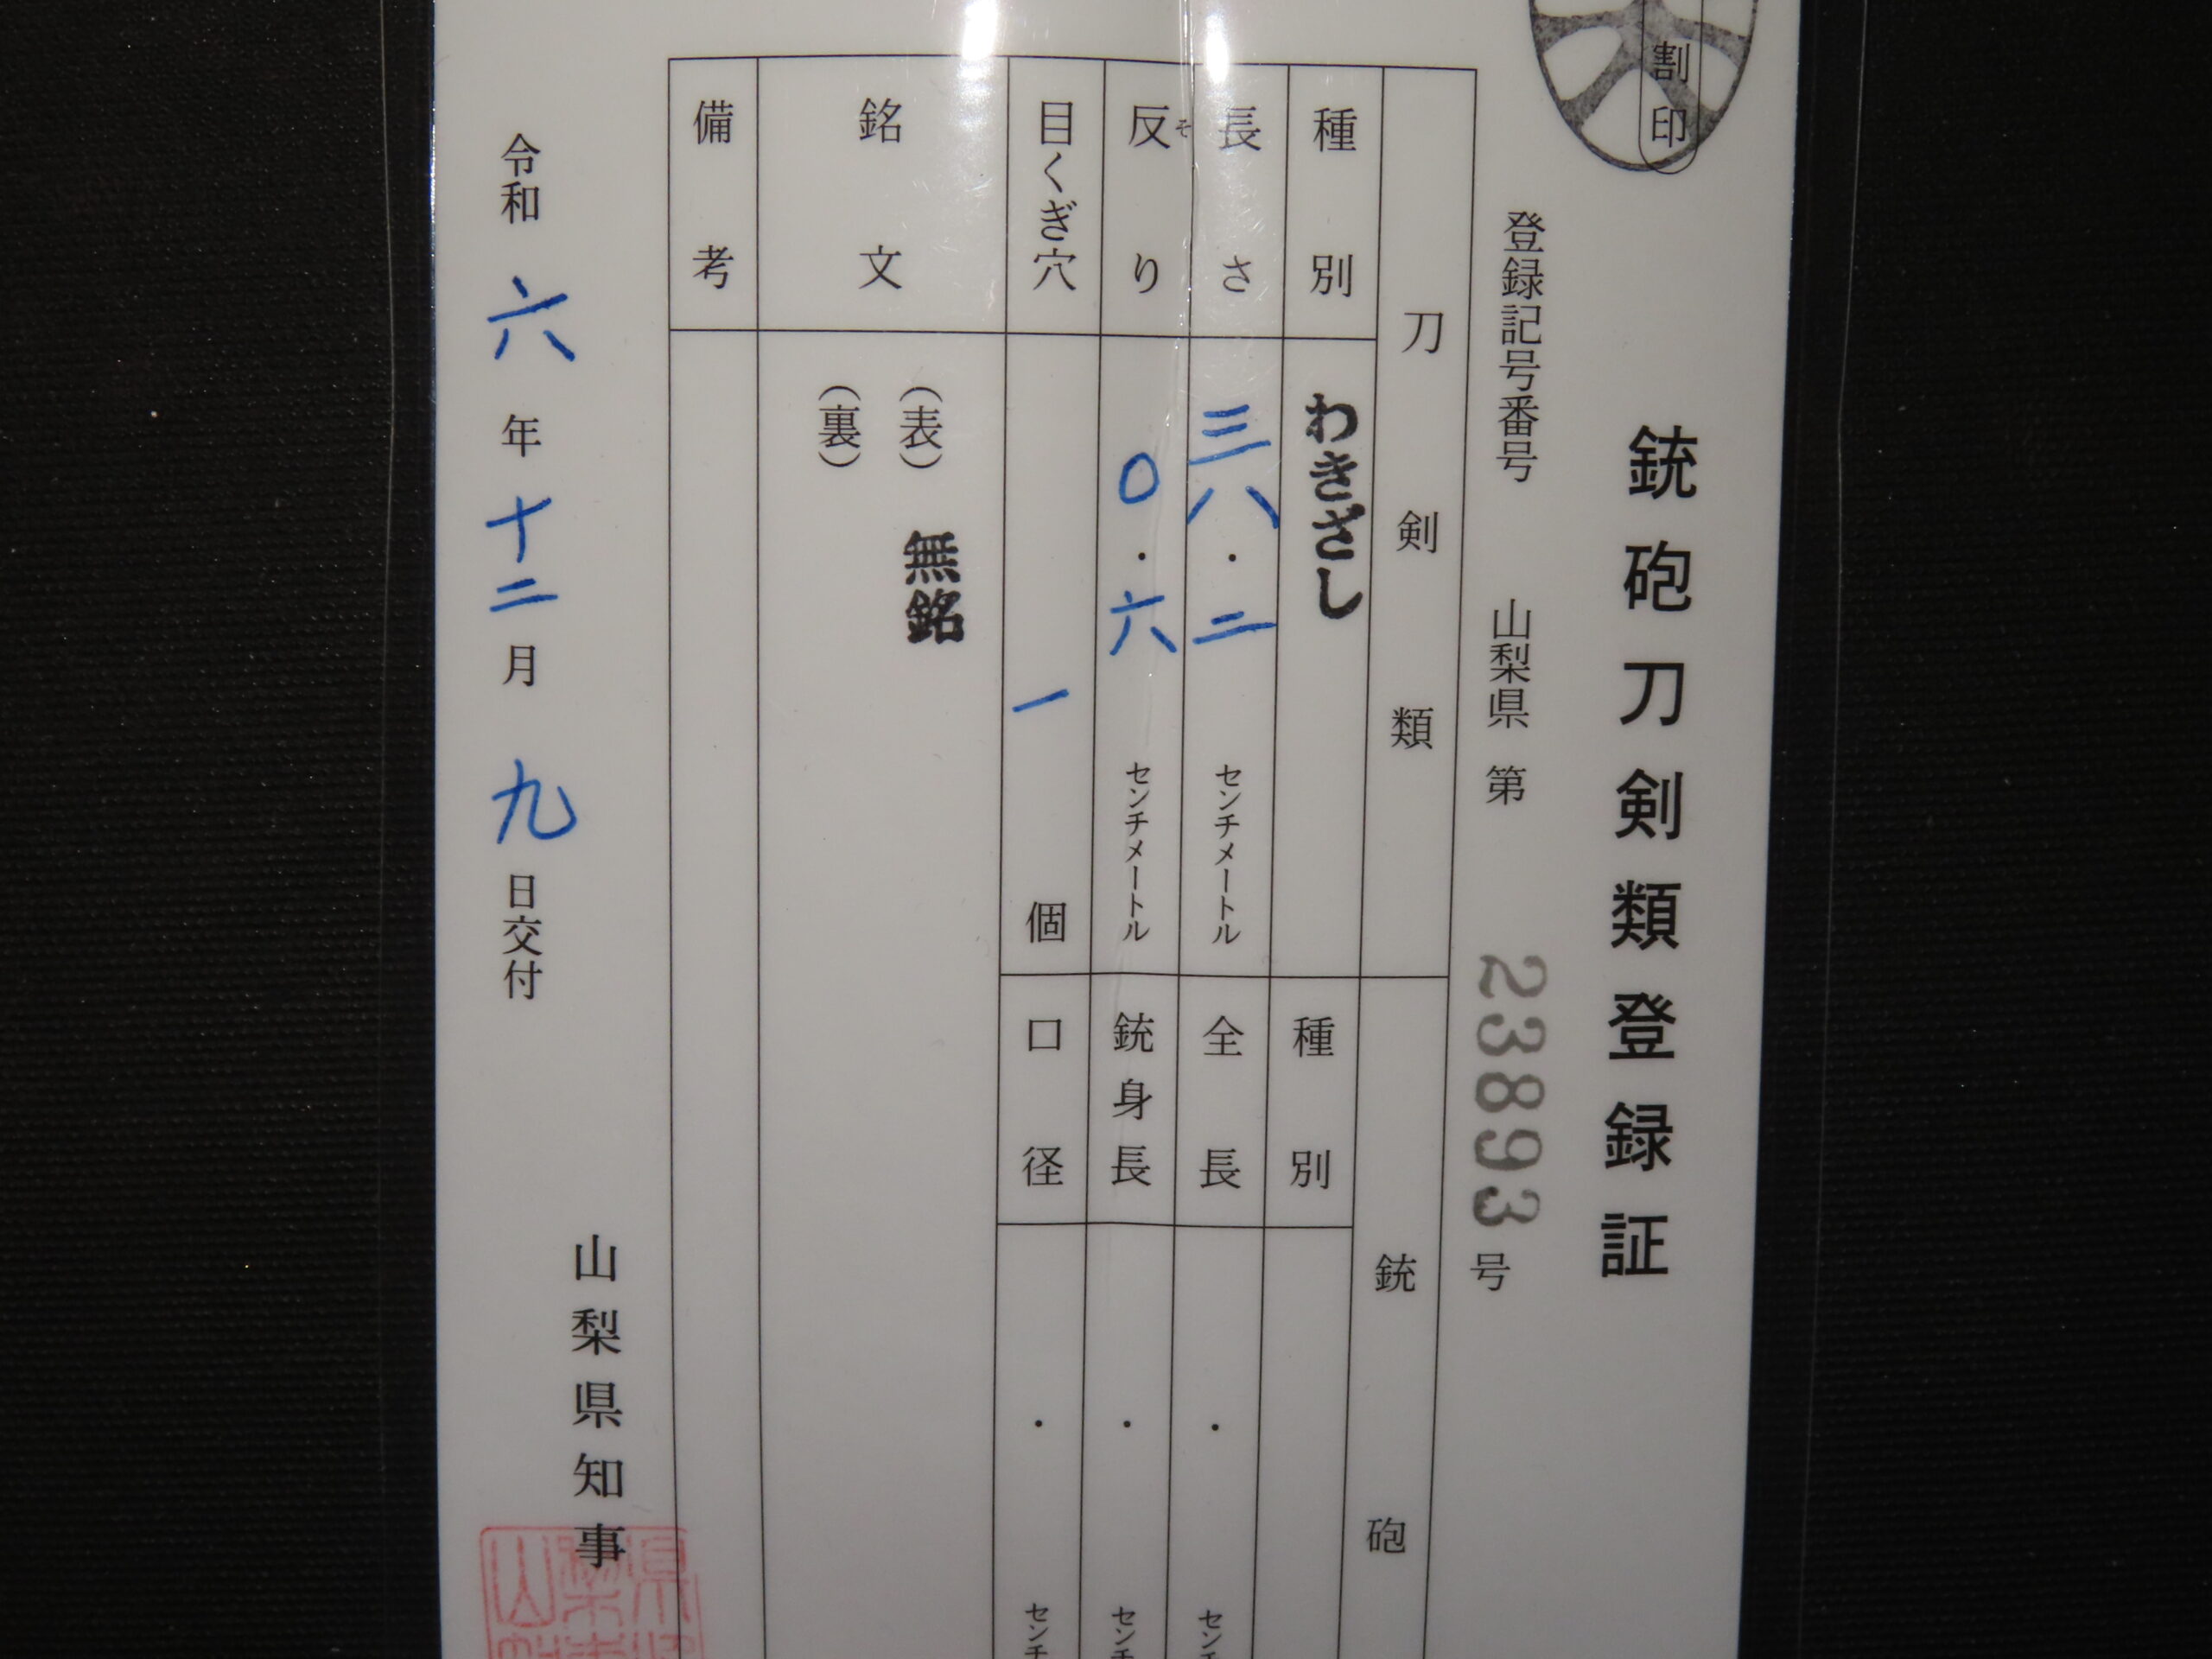 割印
銃砲刀剣類登録証
登録記号番号 山梨県 第 23893 号
刀剣類
種別 わきざし
長さ 三八・二 センチメートル
反り 〇・六 センチメートル
そ
目くぎ穴 一 個
銘文
（表） 無銘
（裏）
備考
銃砲
種別
全長 ・ センチ
銃身長 ・ センチ
口径 ・ センチ
令和 六 年 十二 月 九 日交付
山梨県知事